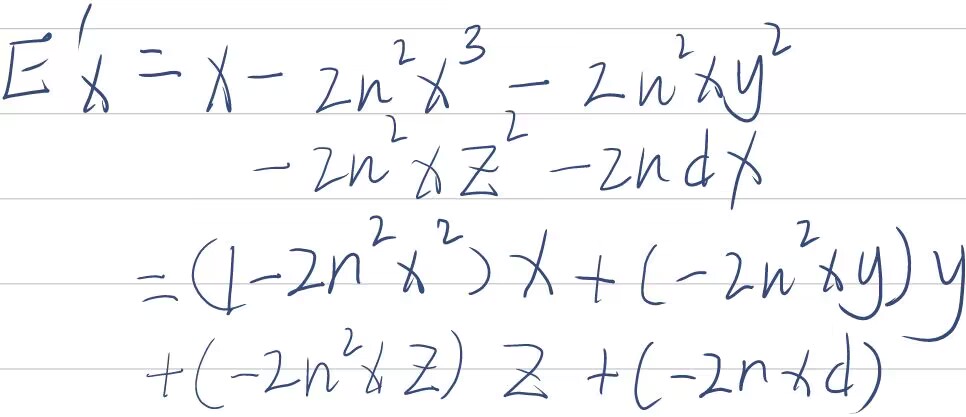 E'x = x - 2n²x³ - 2n²xy²
- 2n²xz² - 2ndx
= (1 - 2n²x²)x + (-2n²xy)y
+ (-2n²xz) z + (-2nxd)